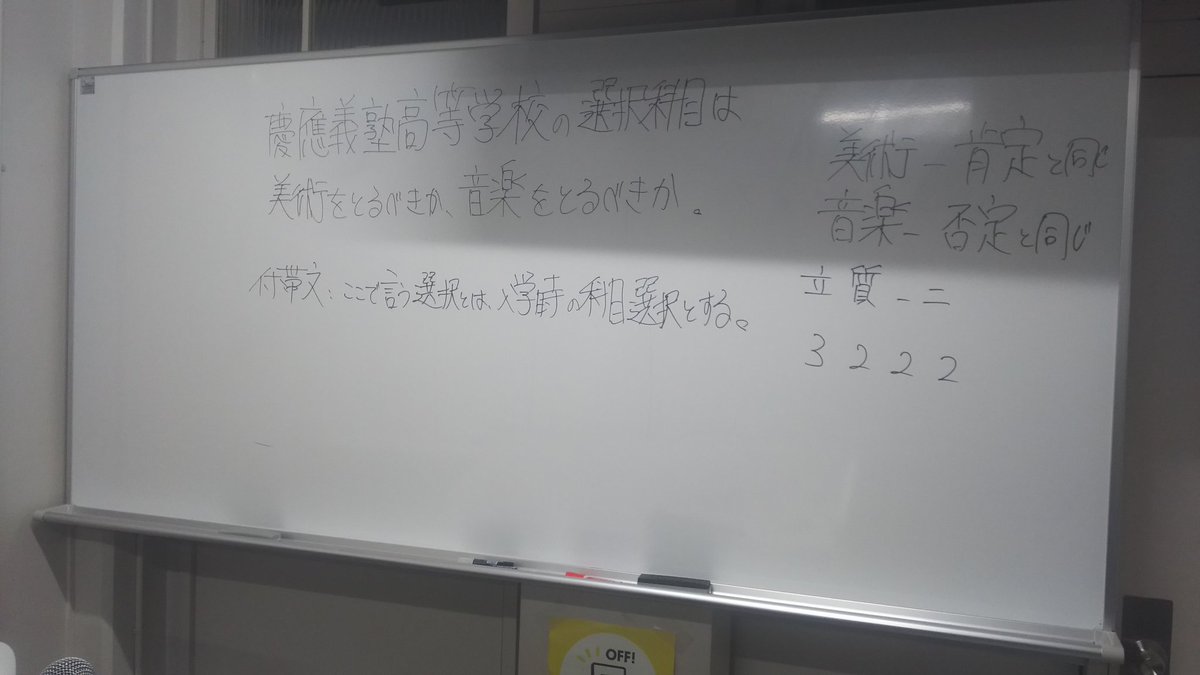 慶應義塾高等学校の選択科目は
美術をとるべきか、音楽をとるべきか。
付帯文:ここで言う選択とは、入学時の科目選択とする。
美術ー肯定と同じ
音楽ー否定と同じ
立質ー二
3 2 2 2
OFF!